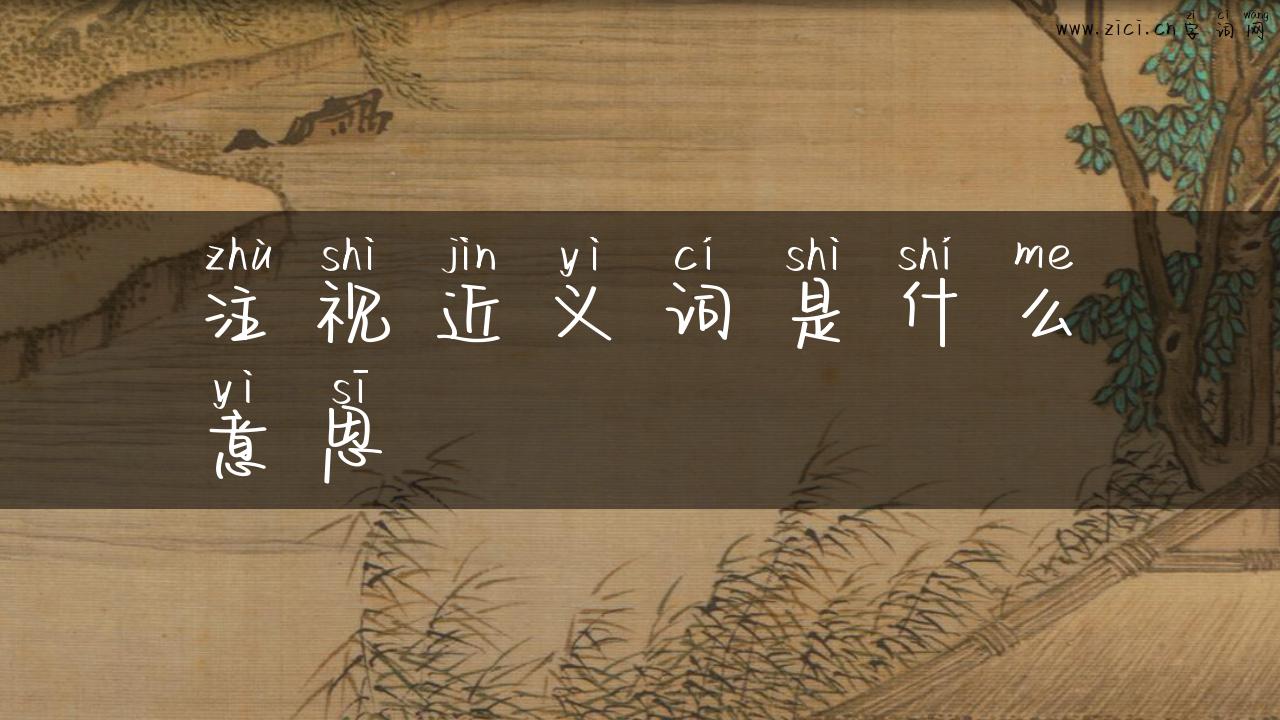 zì cí wǎng
www.zici.cn字词网
zhù shì jìn yì cí shì shí me
注视近义词是什么
yì sī
意思